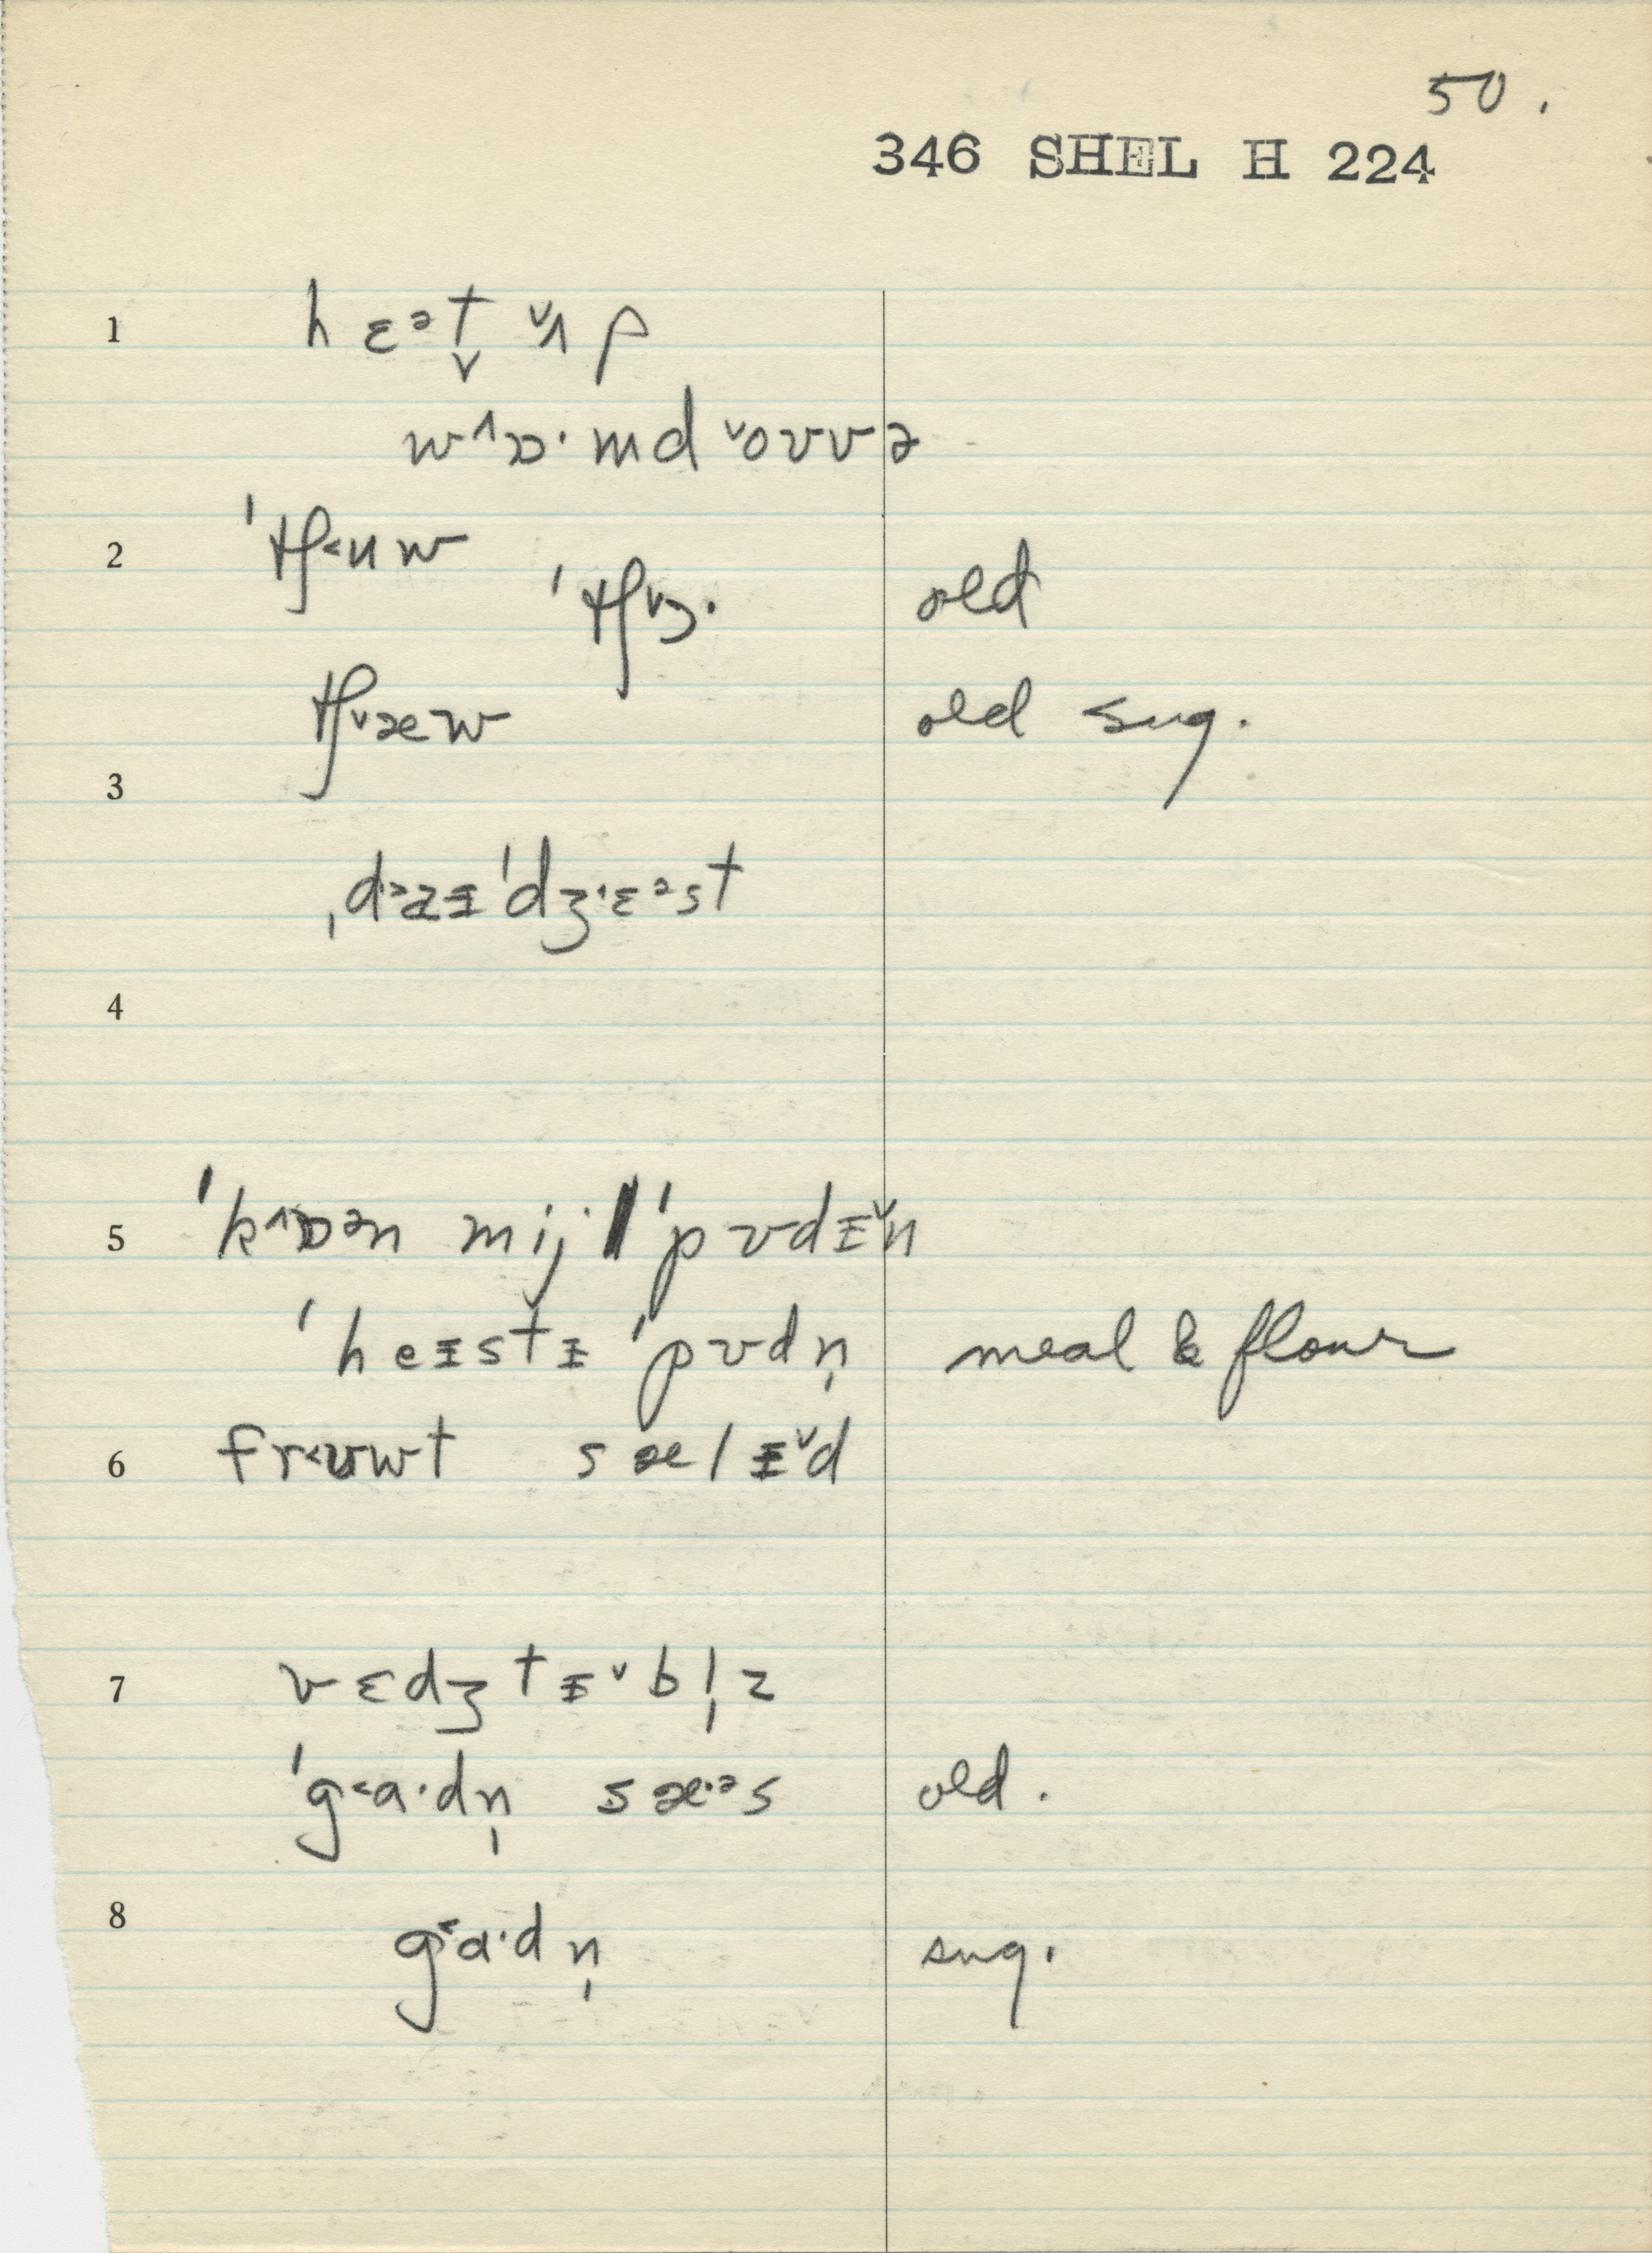 50.
346 SHEL H 224
1 hɛᵊt̬ ˇʌp
wˆɒ·md ˇoʊvə
2 ˈtʃ˂uw
ˈtʃˇɔ· old
tʃˇæw old sug.
3
ˌdˑᵊaɪˈdʒˑɛᵊst
4
5 ˈkˆɒᵊn mij·l ˈpʊdɪˇn
ˈheɪstɪ ˈpʊdn̩ meal & flour
6 fr˂ʊwt sælɪˇd
7 vɛdʒtɪˇbl̩z
ˈg˂a·dn̩ sæ·ᵊs old.
8
g˂a·dn̩ sug.